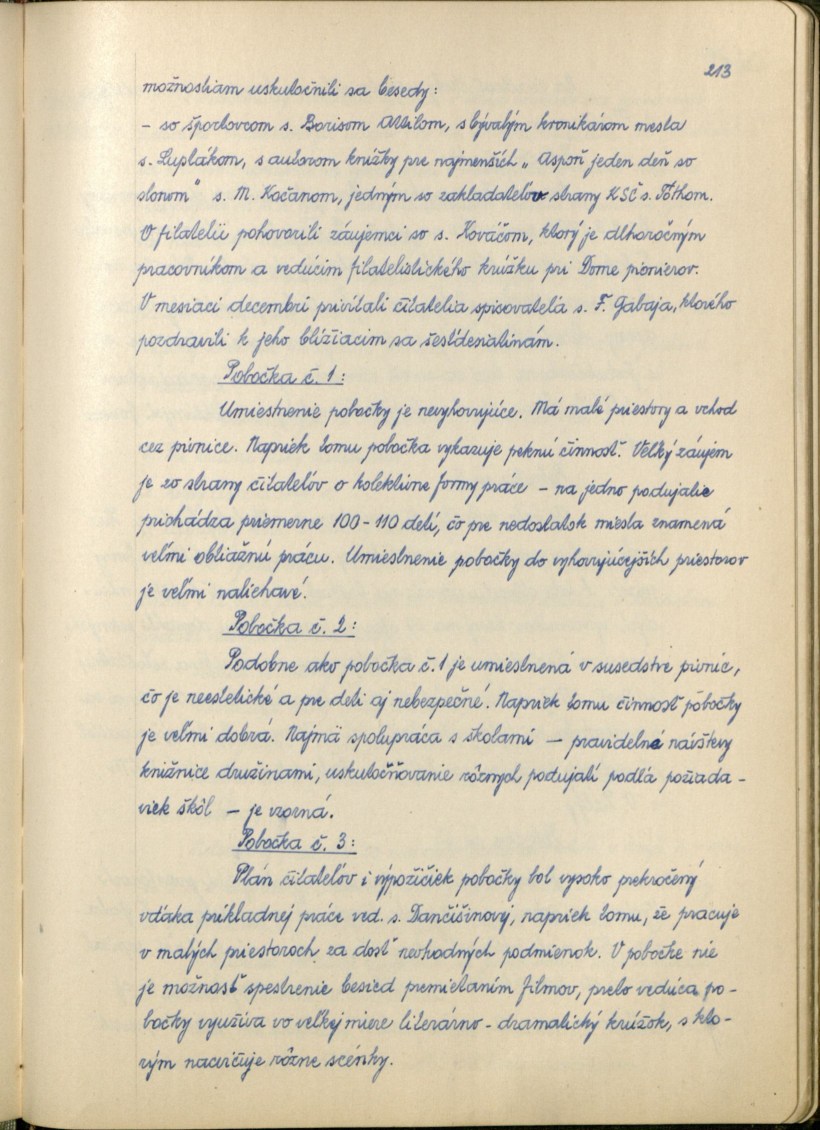 213
možnostiam uskutočnili sa besedy:
- so športovcom s. Borisom Attilom, s bývalým kronikárom mesta
s. Luptákom, s autorom knižky pre najmenších „ Aspoň jeden deň so
slonom" s. M. Kočanom, jedným so zakladateľov strany KSČ s. Tóthom.
O filatelii pohovorili záujemci so s. Kováčom, ktorý je dlhoročným
pracovníkom a vedúcim filatelistického krúžku pri Dome pionierov.
V mesiaci decembri privítali čitatelia spisovateľa s. F. Gabaja, ktorého
pozdravili k jeho blížiacim sa šesťdesiatinám.
Pobočka č. 1:
Umiestnenie pobočky je nevyhovujúce. Má malé priestory a vchod
cez pivnice. Napriek tomu pobočka vykazuje peknú činnosť. Veľký záujem
je zo strany čitateľov o kolektívne formy práce - na jedno podujatie
prichádza priemerne 100-110 detí, čo pre nedostatok miesta znamená
veľmi obtiažnú prácu. Umiestnenie pobočky do vyhovujúcejších priestorov
je veľmi naliehavé.
Pobočka č. 2:
Podobne ako pobočka č. 1 je umiestnená v susedstve pivníc,
čo je neestetické a pre deti aj nebezpečné. Napriek tomu činnosť pobočky
je veľmi dobrá. Najmä spolupráca s školami — pravidelné návštevy
knižnice družinami, uskutočňovanie rôznych podujatí podľa požiada-
viek škôl - je vzorná.
Pobočka č. 3:
Plán čitateľov i výpožičiek pobočky bol vysoko prekročený
vďaka príkladnej práce ved. s. Dančišinovej, napriek tomu, že pracuje
v malých priestoroch za dosť nevhodných podmienok. V pobočke nie
je možnosť spestrenie besied premietaním filmov, preto vedúca po-
bočky využíva vo veľkej miere literárno-dramatický krúžok, s kto-
rým nacvičuje rôzne scénky.